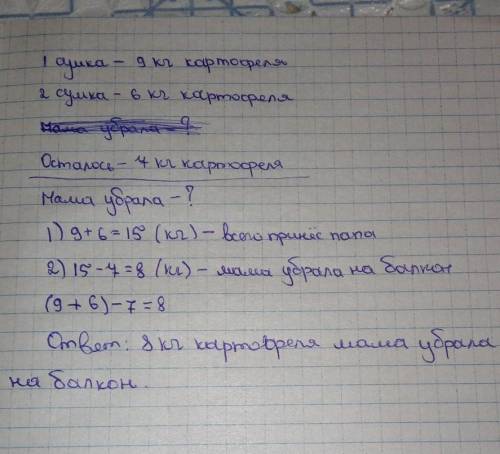 1 сумка – 9 кг картофеля
2 сумка – 6 кг картофеля
Мама убрала – ?
Осталось – 7 кг картофеля
Мама убрала – ?
1) 9+6=15 (кг) – всего принёс папа
2) 15-7=8 (кг) – мама убрала на балкон
(9+6)-7=8
Ответ: 8 кг картофеля мама убрала
на балкон.